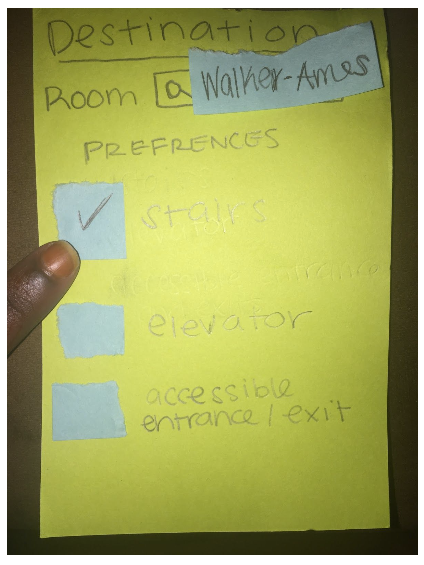 Destination
Room a Walker-Ames
PREFRENCES
✓ stairs
elevator
accessible
entrance / exit